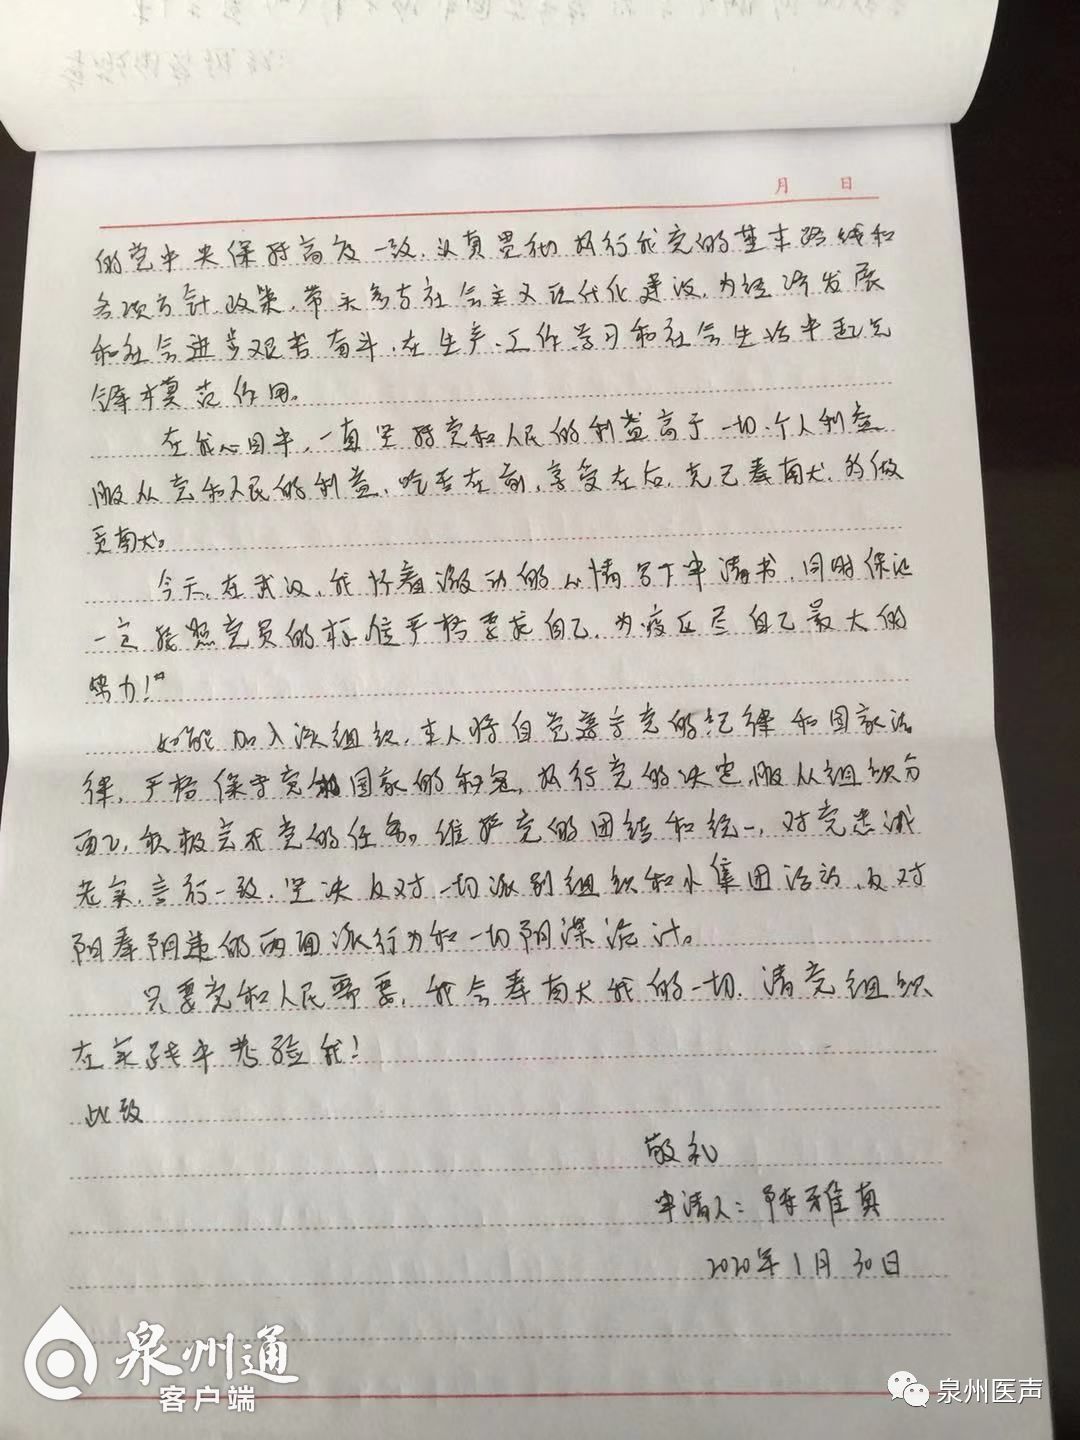 月 日
的党中央保持高度一致,认真贯彻执行我党的基本路线和
各项方针、政策,带头参与社会主义现代化建设,为经济发展
和社会进步艰苦奋斗,在生产、工作学习和社会生活中起先
锋模范作用。
在我心目中,一直坚持党和人民的利益高于一切,个人利益
服从党和人民的利益,吃苦在前,享受在后,克己奉献,多做
贡献。
今天,在武汉,我怀着激动的心情写下申请书,同时保证
一定按照党员的标准严格要求自己,为疫区尽自己最大的
努力!"
如能加入该组织,本人将自觉遵守党的纪律和国家法
律,严格保守党和国家的秘密,执行党的决定,服从组织分
配,积极完成党的任务。维护党的团结和统一,对党忠诚
老实,言行一致,坚决反对一切派别组织和小集团活动,反对
阳奉阴违的两面派行为和一切阴谋诡计。
只要党和人民需要,我会奉献我的一切,请党组织
在实践中考验我!
此致
敬礼
申请人:陈雅真
2020年1月30日
泉州通
客户端
泉州医声